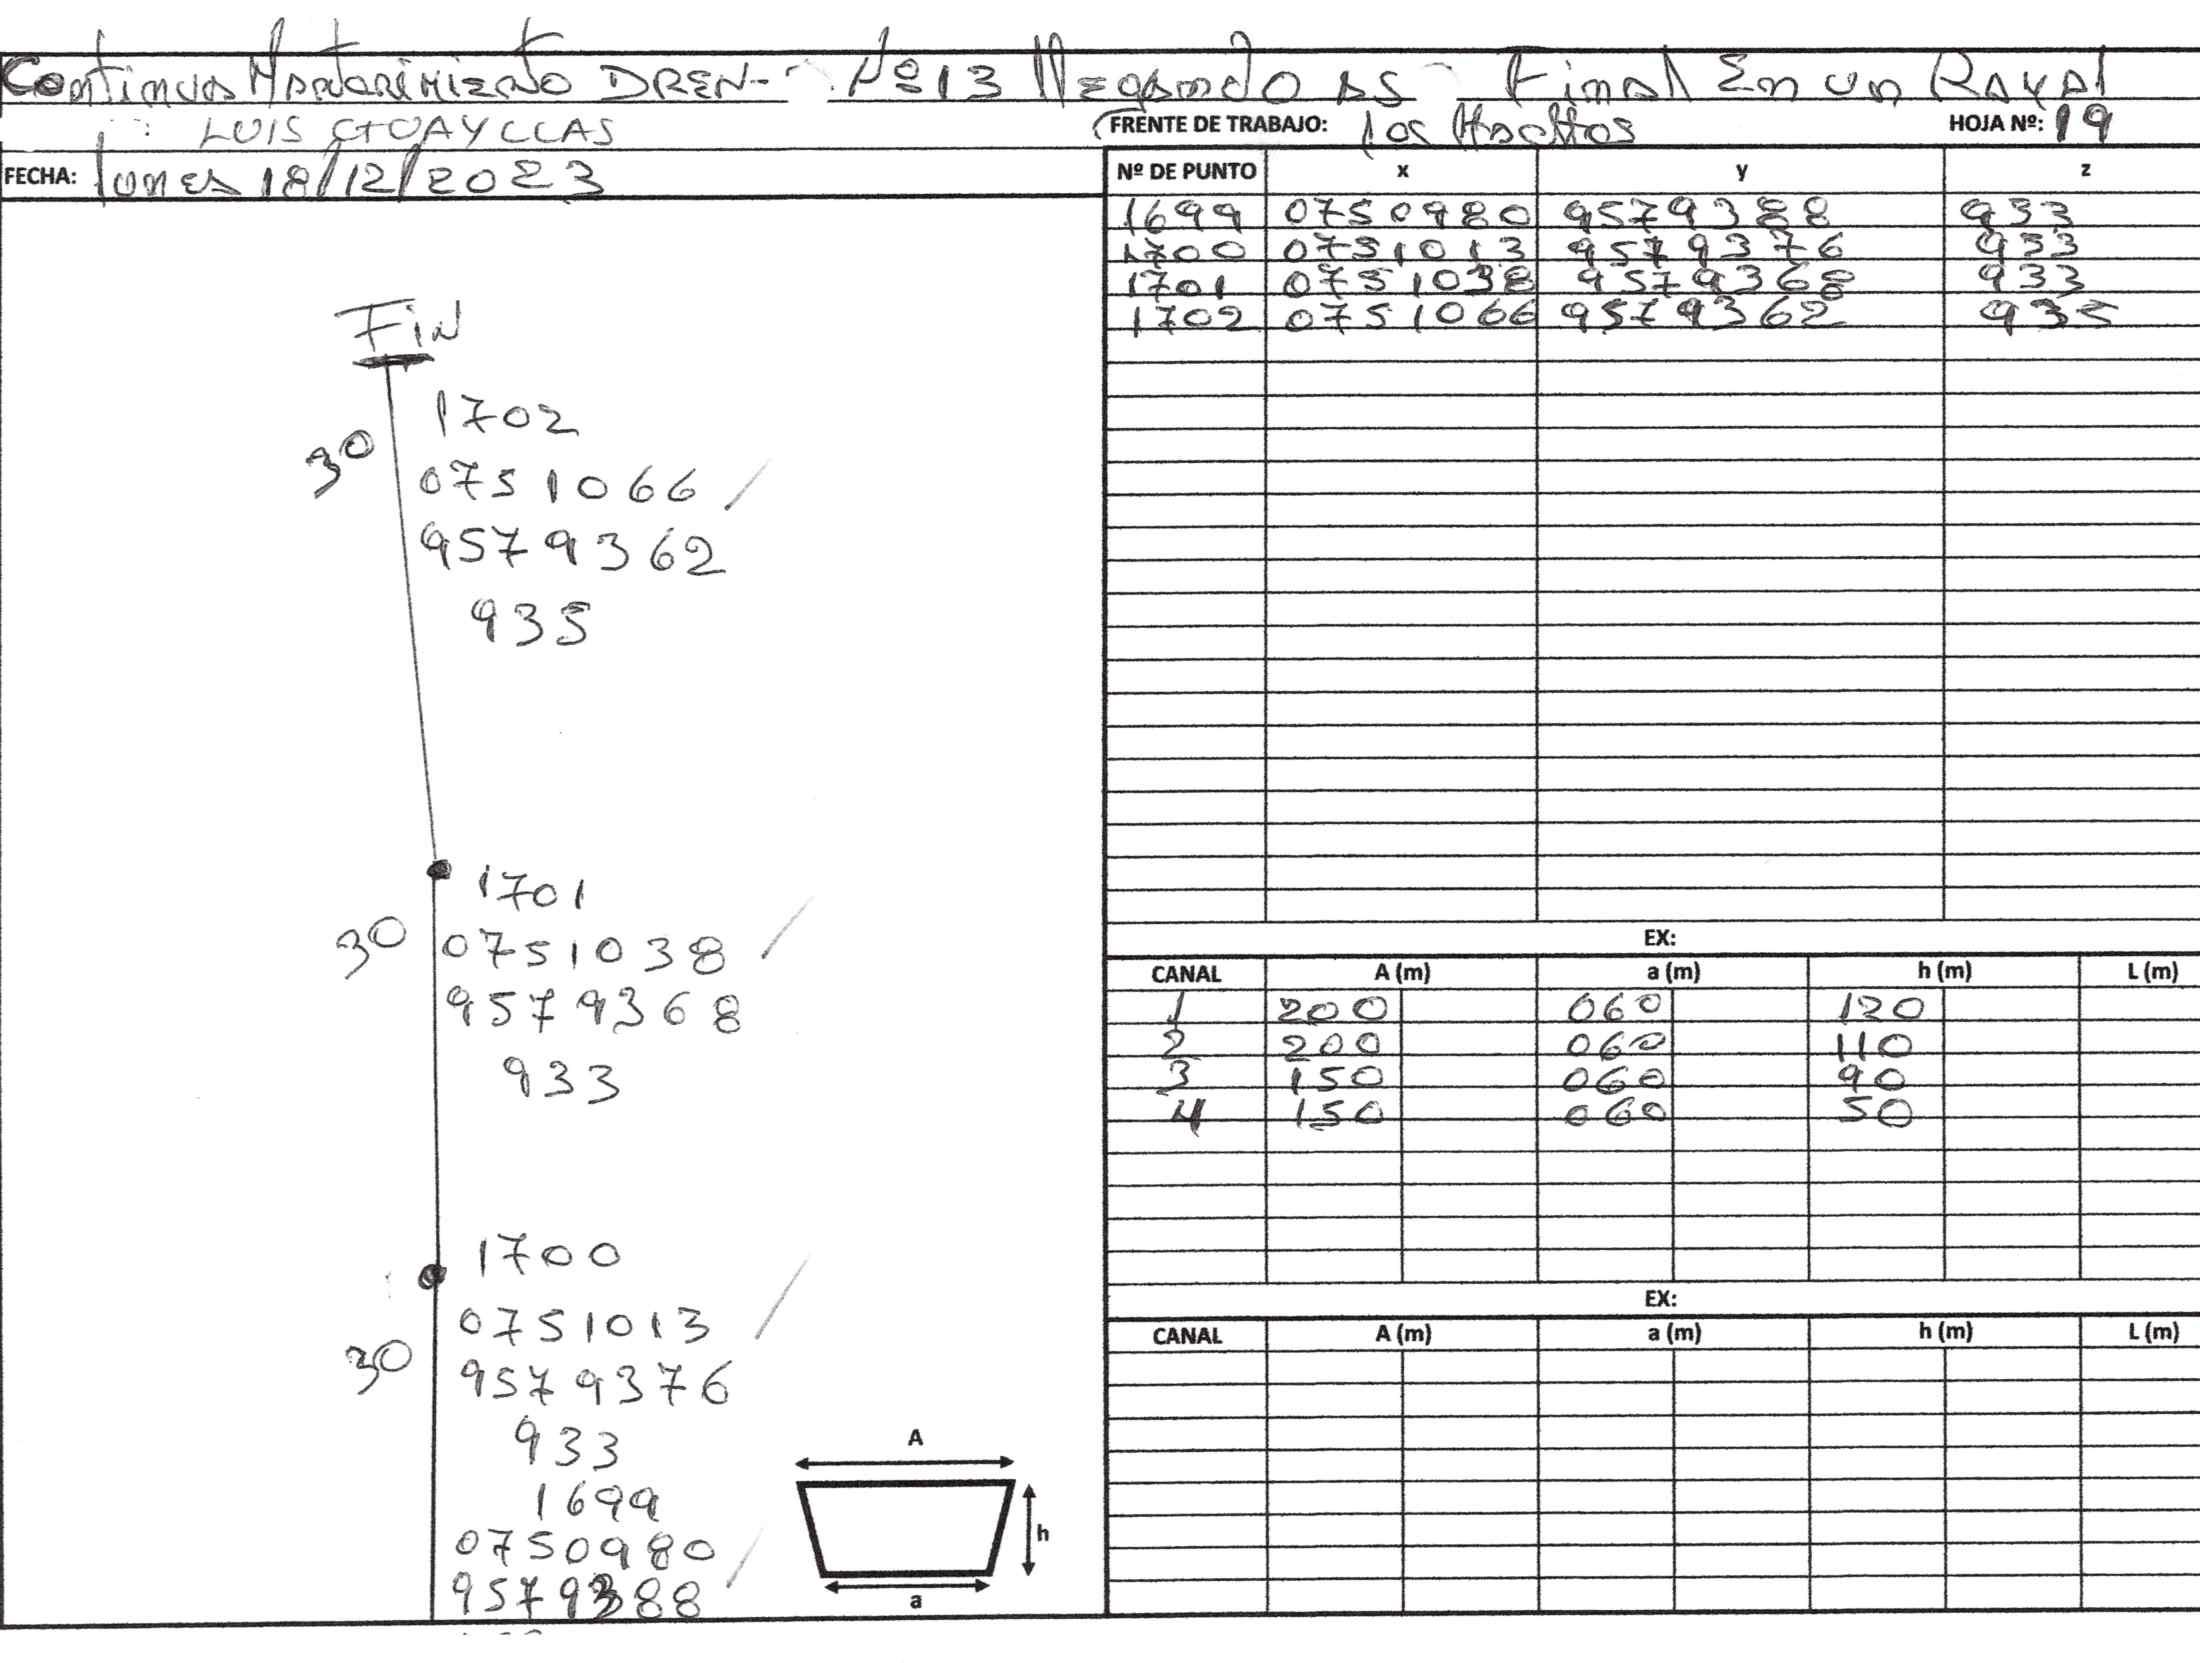 Continua Mantenimiento DREN- Nº 13 llegando as Final En un Rayal
LUIS GUAYLLAS
FRENTE DE TRABAJO: los HOJA Nº: 19
FECHA: lunes 18/12/2023
Nº DE PUNTO x y z
1699 0750980 9579388 933
1700 0751013 9579376 933
1701 0751038 9579368 933
1702 0751066 9579362 935
FiN
1702
30
0751066
9579362
935
1701
30
0751038
9579368
933
1700
0751013
30
9579376
933
1699
0750980
9579388
A
h
a
EX:
CANAL A (m) a (m) h (m) L (m)
1 200 060 120
2 200 060 110
3 150 060 90
4 150 060 50
EX:
CANAL A (m) a (m) h (m) L (m)